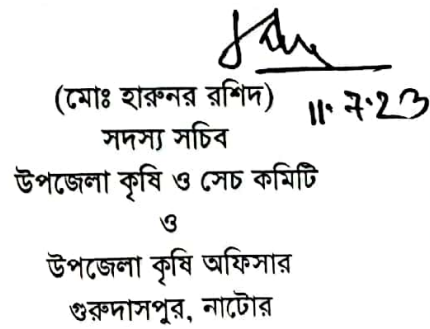 (মোঃ হারুনর রশিদ)
11.7.23
সদস্য সচিব
উপজেলা কৃষি ও সেচ কমিটি
ও
উপজেলা কৃষি অফিসার
গুরুদাসপুর, নাটোর